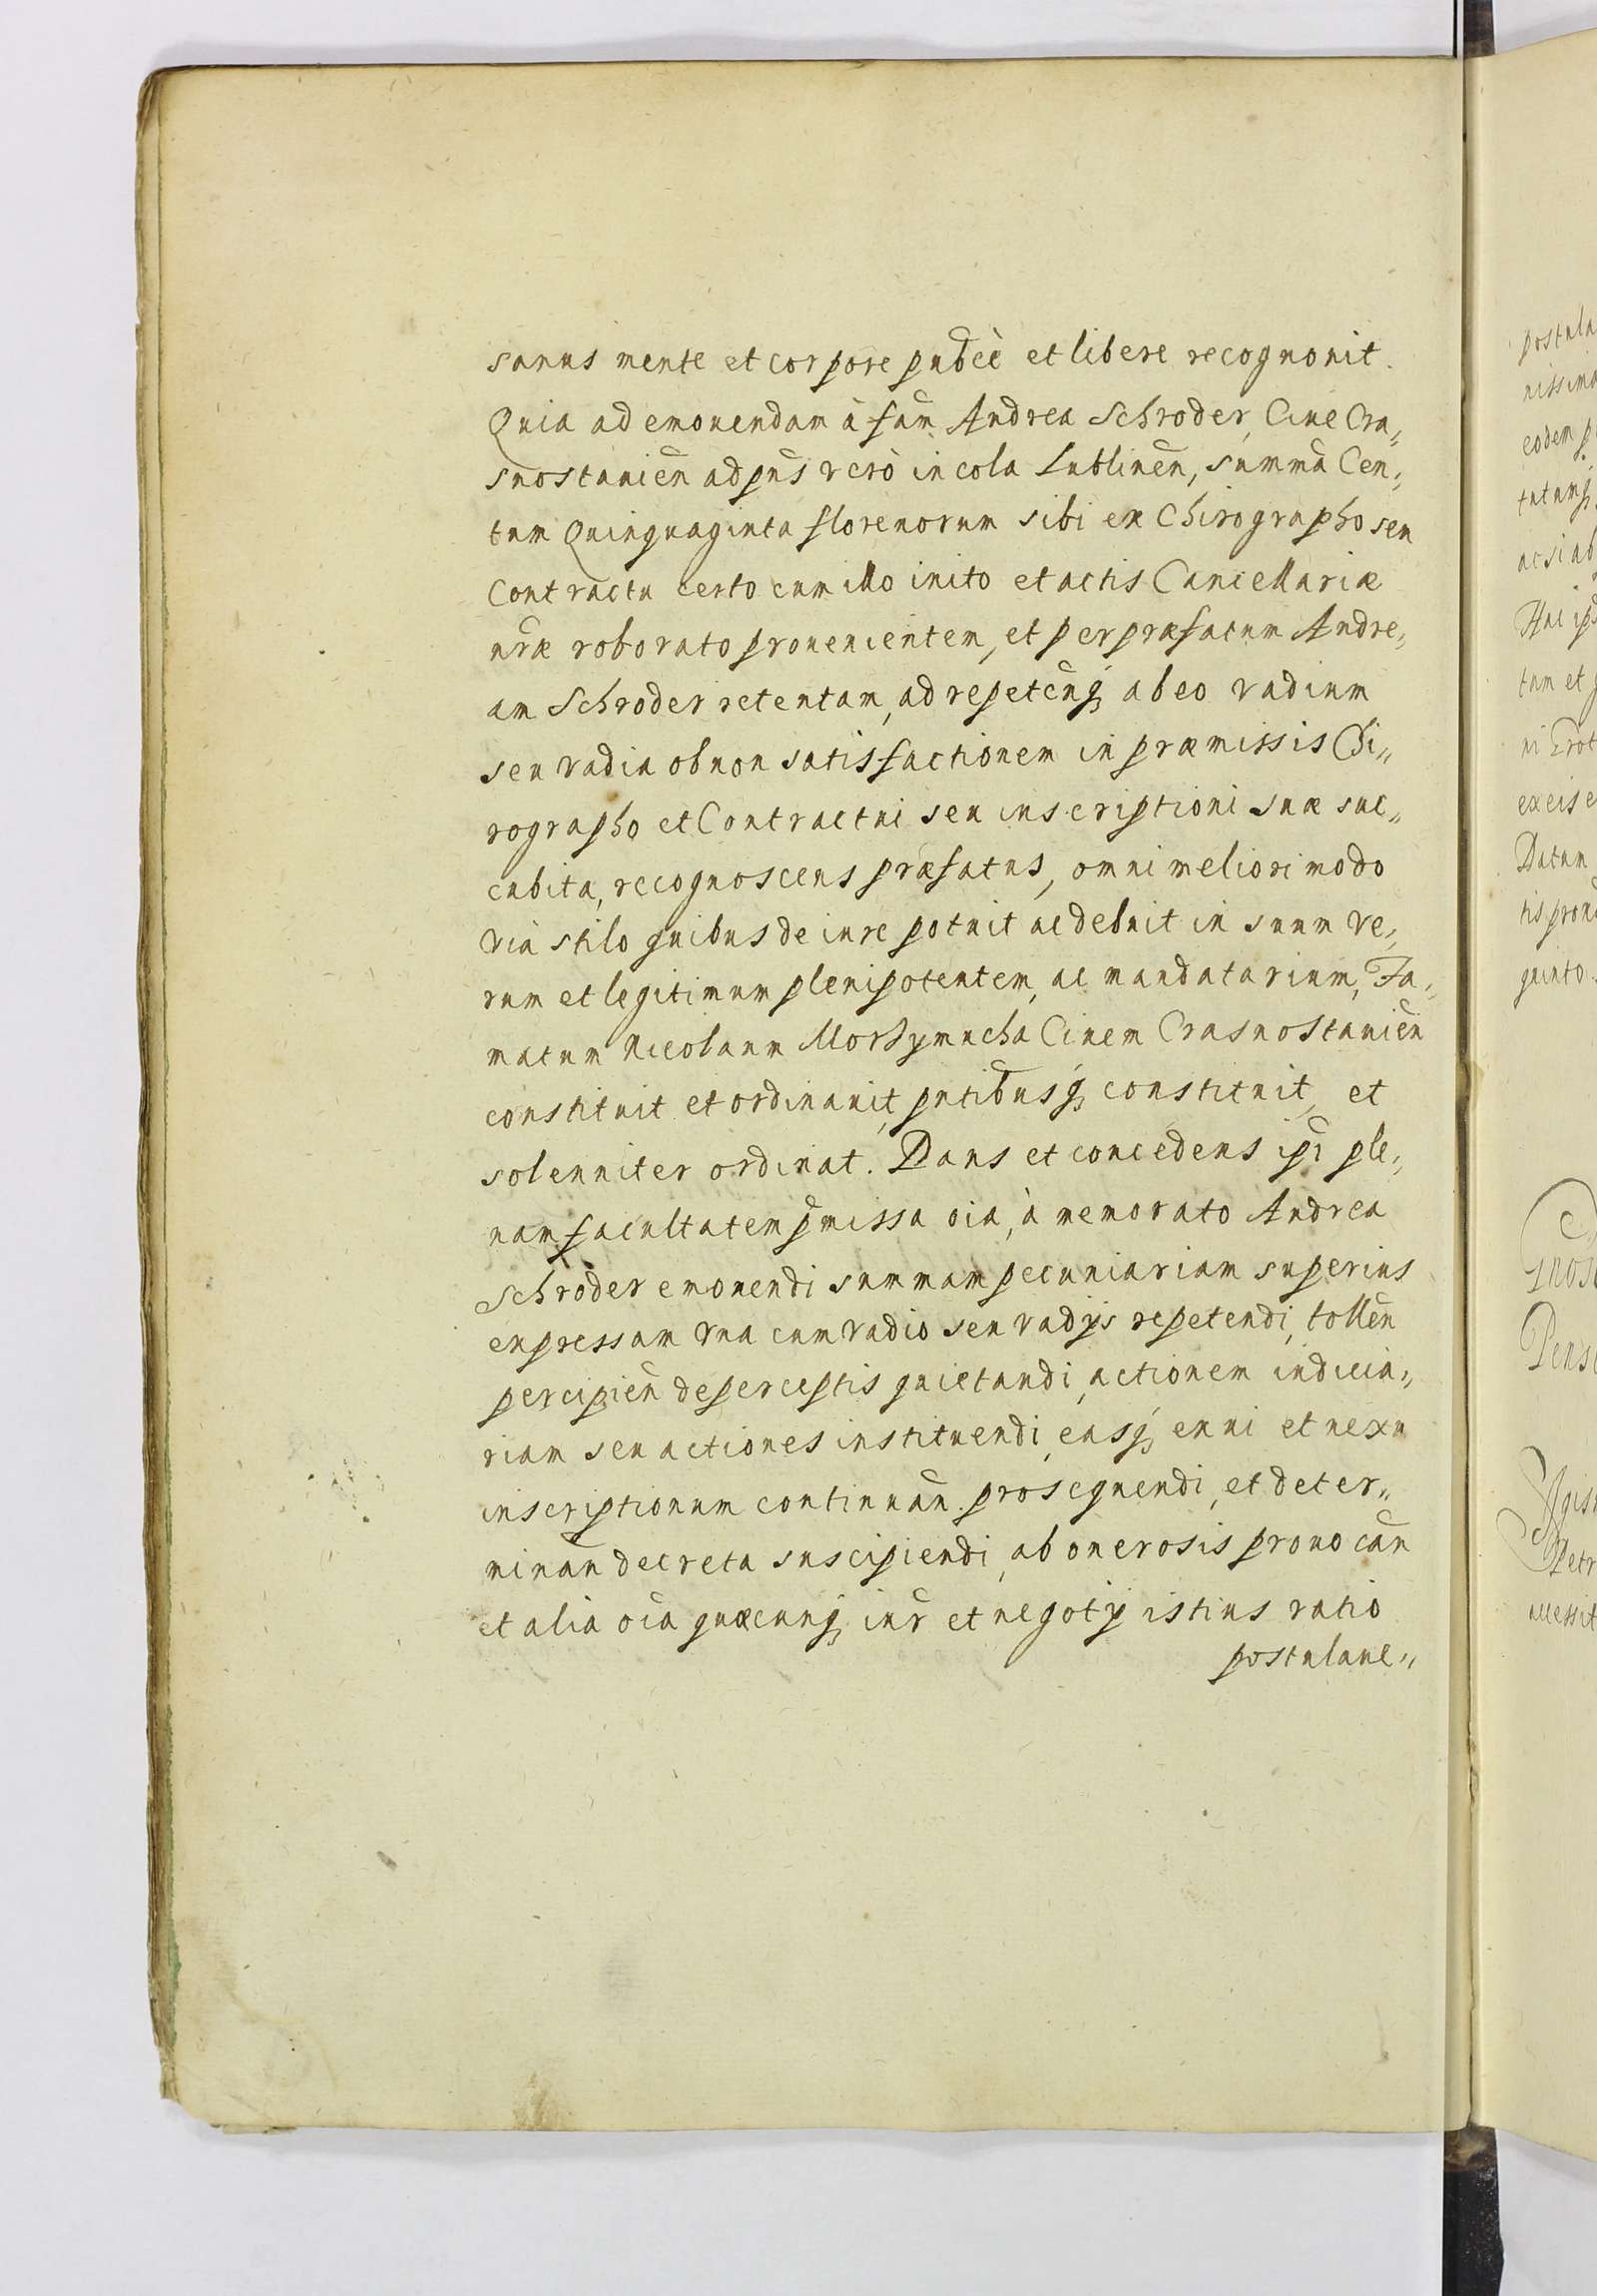 sanus mente et corpore pubcè et libere recognouit.
Quia ad emouendam à fam̃ Andrea Schroder, Ciue Cra„
snostauien̄ ad pn̄s verò incola Lublinen̄, summā Cen„
tum Quinquaginta florenorum sibi ex Chirographo seu
Contractu certo cum illo inito et actis Cancellariæ
nr̄æ roborato prouenientem, et per præfatum Andre„
am Schroder retentam, ad repeten̄q₃ ab eo vadium
seu vadia ob non satisfactionem in præmissis Chi„
rographo et Contractui seu inscriptioni suæ suc„
cubita, recognoscens præfatus, omni meliori modo
via stilo quibus de iure potuit ac debuit in suum ve„
rum et legitimum plenipotentem, ac mandatarium, Fa„
matum Nicolaum Ciuem Crasnostauien̄
constituit et ordinauit, pn̄tibusq₃ constituit, et
solenniter ordinat. Dans et concedens ip̄i ple„
nam facultatem p̄missa oīa, à memorato Andrea
Schroder emouendi summam pecuniariam superius
expressam vna cum vadio seu vadijs repetendi, tollen̄
percipien̄ de perceptis quietandi, actionem iudicia„
riam seu actiones instituendi, easq₃ ex ui et nexu
inscriptionum continuan̄ prosequendi, et deter„
minan̄ decreta suscipiendi, ab onerosis prouocan̄
et alia oīa quæcunq₃ iur̄ et negotij istius ratio
postulaue„
postula
nissima
eodem
tutumq₃
ac si ab
Hac ip̄
tum et
ni Prot
ex eis e
Datum
tis
quinto.
Gnos
Pens
Agis
Petr